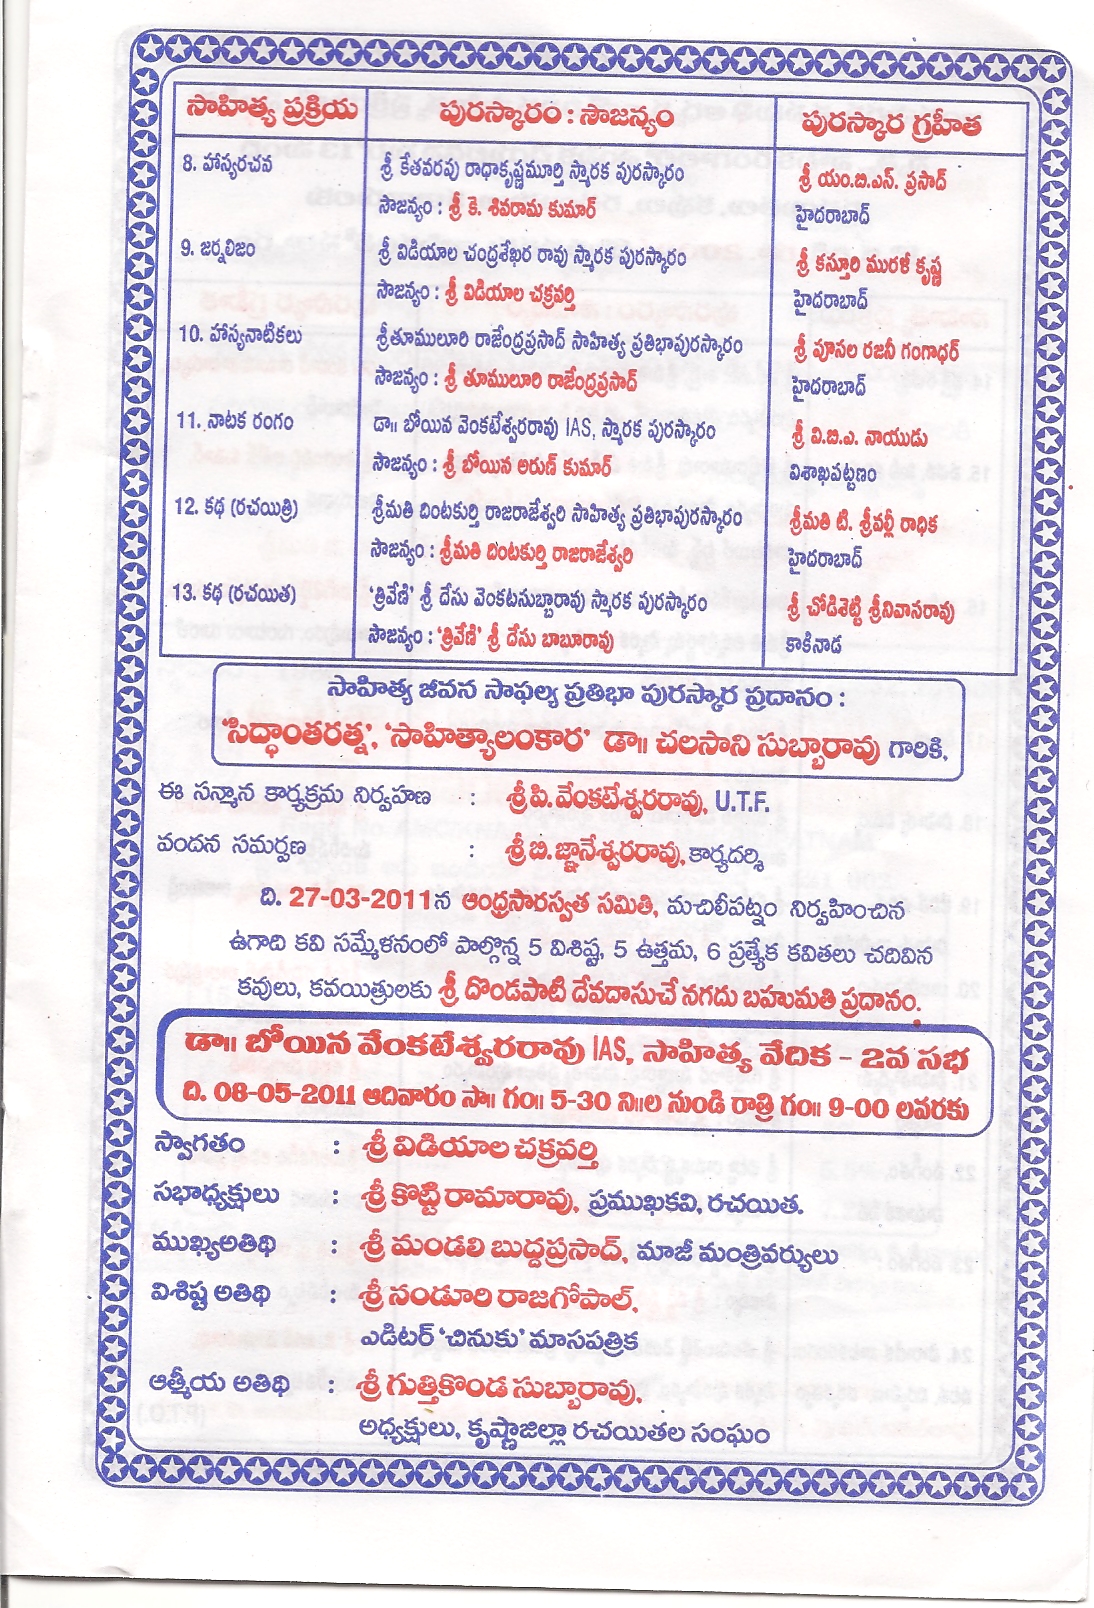 సాహిత్య ప్రక్రియ పురస్కారం : సౌజన్యం పురస్కార గ్రహీత
8. హాస్యరచన శ్రీ కేతవరపు రాధాకృష్ణమూర్తి స్మారక పురస్కారం శ్రీ యం.బి.ఎస్. ప్రసాద్
సౌజన్యం : శ్రీ కె. శివరామ కుమార్ హైదరాబాద్
9. జర్నలిజం శ్రీ విడియాల చంద్రశేఖర రావు స్మారక పురస్కారం శ్రీ కస్తూరి మురళీ కృష్ణ
సౌజన్యం : శ్రీ విడియాల చక్రవర్తి హైదరాబాద్
10. హాస్యనాటికలు శ్రీతూములూరి రాజేంద్రప్రసాద్ సాహిత్య ప్రతిభాపురస్కారం శ్రీ పూసల రజనీ గంగాధర్
సౌజన్యం : శ్రీ తూములూరి రాజేంద్రప్రసాద్ హైదరాబాద్
11. నాటక రంగం డా॥ బోయిన వెంకటేశ్వరరావు IAS, స్మారక పురస్కారం శ్రీ వి.బి.ఎ. నాయుడు
సౌజన్యం : శ్రీ బోయిన అరుణ్ కుమార్ విశాఖపట్టణం
12. కథ (రచయిత్రి) శ్రీమతి దింటకుర్తి రాజరాజేశ్వరి సాహిత్య ప్రతిభాపురస్కారం శ్రీమతి టి. శ్రీవల్లీ రాధిక
సౌజన్యం : శ్రీమతి దింటకుర్తి రాజరాజేశ్వరి హైదరాబాద్
13. కథ (రచయిత) ‘త్రివేణి’ శ్రీ దేసు వెంకటసుబ్బారావు స్మారక పురస్కారం శ్రీ చోడిశెట్టి శ్రీనివాసరావు
సౌజన్యం : ‘త్రివేణి’ శ్రీ దేసు బాబూరావు కాకినాడ
సాహిత్య జీవన సాఫల్య ప్రతిభా పురస్కార ప్రదానం :
‘సిద్ధాంతరత్న’, ‘సాహిత్యాలంకార’ డా॥ చలసాని సుబ్బారావు గారికి.
ఈ సన్మాన కార్యక్రమ నిర్వహణ : శ్రీ పి. వేంకటేశ్వరరావు, U.T.F.
వందన సమర్పణ : శ్రీ బి. జ్ఞానేశ్వరరావు, కార్యదర్శి
ది. 27-03-2011న ఆంధ్రసారస్వత సమితి, మచిలీపట్నం నిర్వహించిన
ఉగాది కవి సమ్మేళనంలో పాల్గొన్న 5 విశిష్ట, 5 ఉత్తమ, 6 ప్రత్యేక కవితలు చదివిన
కవులు, కవయిత్రులకు శ్రీ దొండపాటి దేవదాసుచే నగదు బహుమతి ప్రదానం.
డా॥ బోయిన వేంకటేశ్వరరావు IAS, సాహిత్య వేదిక - 2వ సభ
ది. 08-05-2011 ఆదివారం సా॥ గం॥ 5-30 ని॥ల నుండి రాత్రి గం॥ 9-00 లవరకు
స్వాగతం : శ్రీ విడియాల చక్రవర్తి
సభాధ్యక్షులు : శ్రీ కొట్టి రామారావు, ప్రముఖకవి, రచయిత.
ముఖ్యఅతిథి : శ్రీ మండలి బుద్ధప్రసాద్, మాజీ మంత్రివర్యులు
విశిష్ట అతిథి : శ్రీ నండూరి రాజగోపాల్,
ఎడిటర్ ‘చినుకు’ మాసపత్రిక
ఆత్మీయ అతిథి : శ్రీ గుత్తికొండ సుబ్బారావు,
అధ్యక్షులు, కృష్ణాజిల్లా రచయితల సంఘం